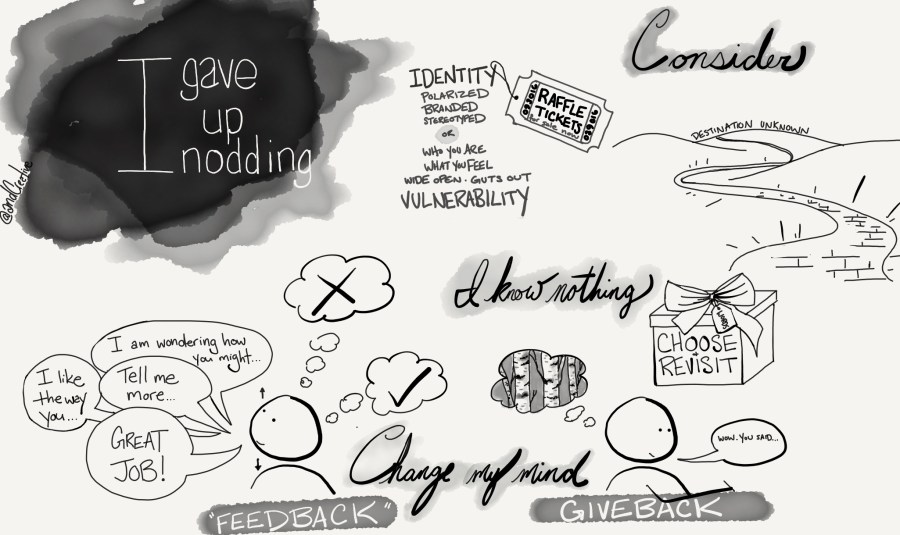 I gave
up
nodding
IDENTITY
POLARIZED
BRANDED
STEREOTYPED
OR
WHO YOU ARE
WHAT YOU FEEL
WIDE OPEN · GUTS OUT
VULNERABILITY
092016
RAFFLE
TICKETS
for sale now
092016
Consider
DESTINATION UNKNOWN
I know nothing
WORDS
CHOOSE
+
REVISIT
I am wondering how
you might...
I like
the way
you...
Tell me
more...
GREAT
JOB!
WOW. YOU SAID...
Change my mind
"FEEDBACK"
GIVEBACK